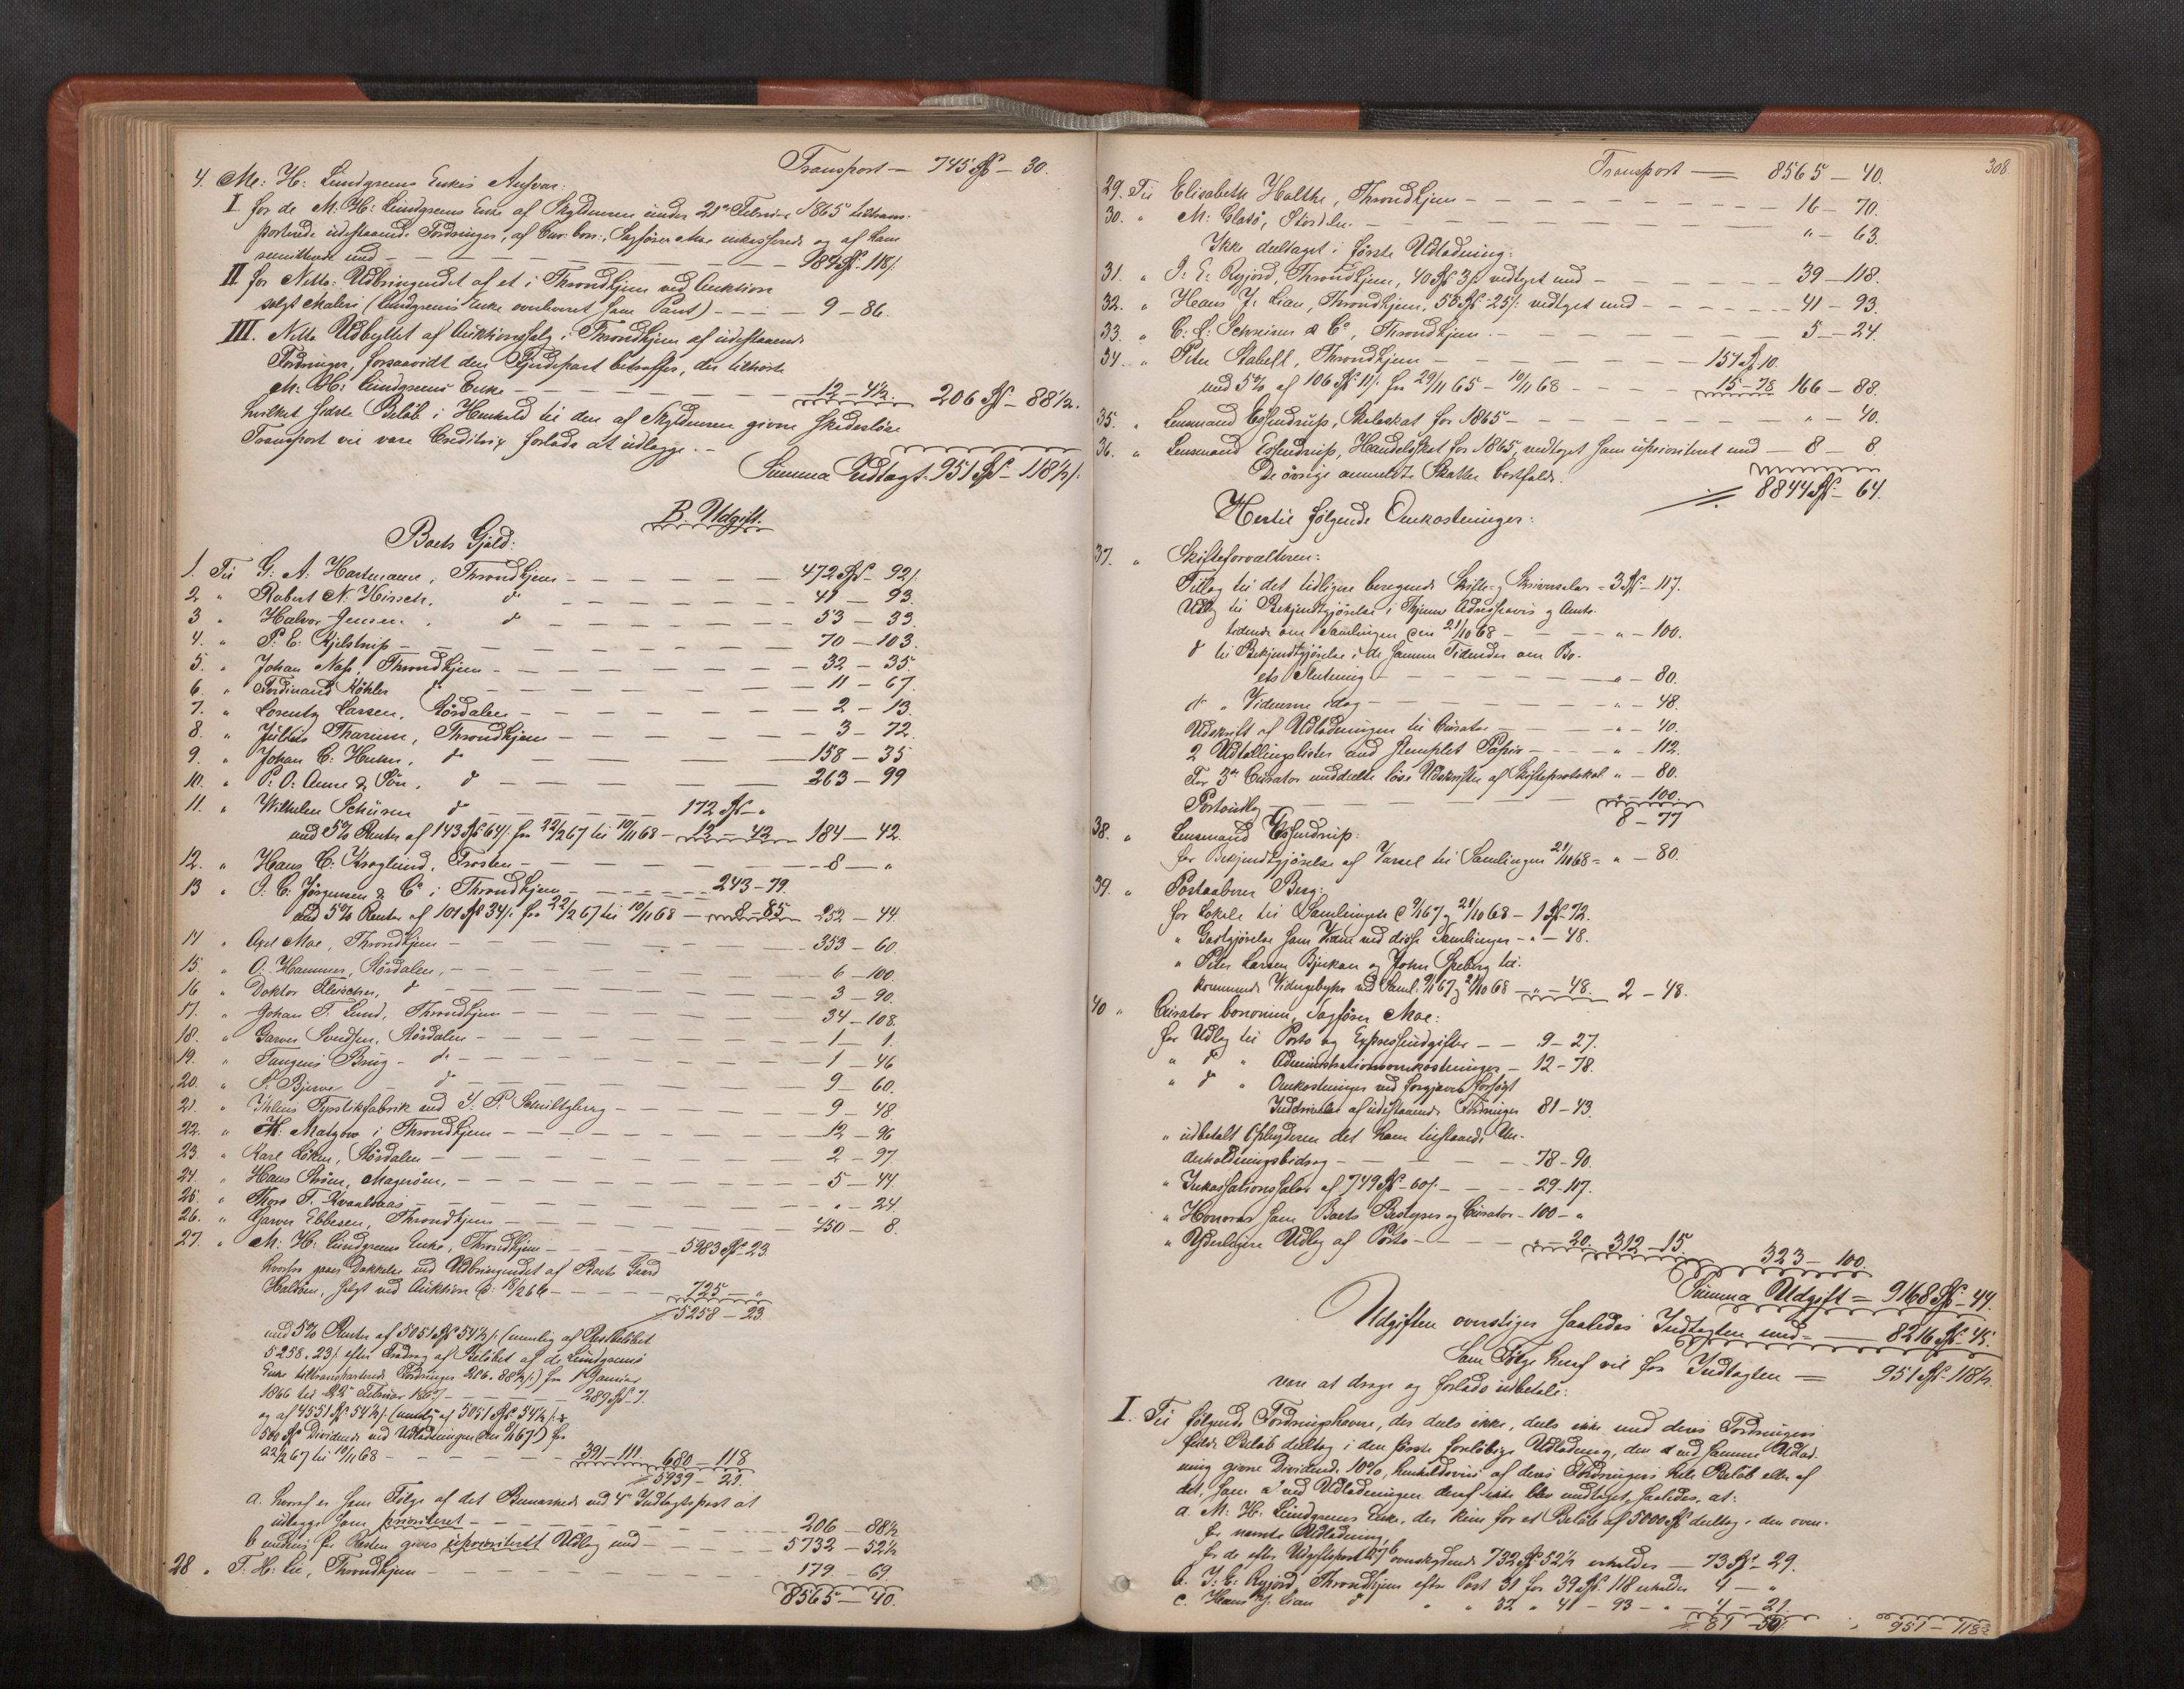 Transport — 745 Spd — 30.
4. M: H: Lundgreens Enkes Ansvar:
I for de M: H: Lundgreens Enke af Skyldneren under 21de Februar 1865 tiltrans-
porterede udestaaende Fordringer, af Cur: bon:, Sagfører Moe inkasserede og af ham
remitterede med — 184 Spd 118 s
II for Netto-Udbringendet af et i Throndhjem ved Auktion
solgt Maleri (Lundgreens Enke overleveret som Pant) — 9 — 86.
III. Netto Udbyttet af Auktionssalg i Throndhjem af udestaaende
Fordringer, forsaavidt den Fjerdepart betræffer, der tilhørte
M: H: Lundgreens Enke — 12 — 4½. 206 Spd — 88½.
hvilket sidste Beløb i Henhold til den af Skyldneren givne skadesløse
Transport vil være Creditrix forlods at udlægge. —
Summa Indtægt. 951 Spd — 118½ s.
B. Udgift.
Boets Gjæld:
1. Til G: A: Hartmann, Throndhjem — 472 Spd — 92 s.
2 " Robert N. Hirsch, do — 41 — 93.
3 " Halvor Jensen, do — 53 — 33.
4. " P. E. Kjelstrup — 70 — 103.
5. " Johan Næss, Throndhjem — 32 — 35.
6. " Ferdinand Köhler do — 11 — 67.
7. " Lorentz Larsen, Størdalen — 2 — 13.
8. " Julius Tharum, Throndhjem — 3 — 72.
9. " Johan C: Huhn, do — 158 — 35
10. " P: O: Aune & Søn, do — 263 — 99
11. " Wilhelm Schürer do — 172 Spd — "
med 5% Renter af 143 Spd 64 s. fra 22/2 67 til 10/11 68 — 12 — 42 184 — 42
12. " Hans C: Kroglund, Frosten — 8 — "
13 " I. C: Jørgensen & Co i Throndhjem — 243 — 79.
med 5% Renter af 101 Spd 34 s. fra 22/2 67 til 10/11 68 — 8 — 85 252 — 44
14 " Axel Moe, Throndhjem — 353 — 60.
15. " O: Hammer, Størdalen, — 6 — 100.
16 " Doktor Fleischer, do — 3 — 90.
17. " Johan F. Lund, Throndhjem — 34 — 108.
18. " Garver Svendsen, Størdalen — 1 — 1.
19. " Tangens Brug — do — 1 — 46
20. " P. Bjerve — do — 9 — 60.
21. " Ihlens Fyrstikfabrik ved I. P. Schultzberg — 9 — 48
22. " M: Matzow i Throndhjem — 12 — 96
23. " Karl Løken, Størdalen — 2 — 97.
24. " Hans Strøm, Magerøen, — 5 — 44.
25. " Thore T. Kvaalsaas — " — 24.
26. " Garver Ebbesen, Throndhjem — 450 — 8.
27. " M: H: Lundgreens Enke, Throndhjem — 5983 Spd 23.
hvorfor gaaer Dækkelse ved Udbringendet af Boets Gaard
Haldsen, solgt ved Auktion d. 18/2 66 — 725 — "
5258 — 23.
med 5% Renter af 5051 Spd 54½ s. (nemlig af Restbeløbet
5258. 23 s. efter Fradrag af Beløbet af de Lundgreens
Enke tiltransporterede Fordringer 206. 88½ s.) fra 1 Januar
1866 til 22 Februar 1867 — 289 Spd 7.
og af 4551 Spd 54½ s. (nemlig af 5051 Spd 54½ s. ÷
500 Spd Dividende ved Udlodningen den 9/1 67) fra
22/2 67 til 10/11 68 — 391 — 111. 680 — 118
5939 — 21.
a. hvoraf er som Følge af det Bemærkede ved 4de Indtægtspost at
udlægge som prioriteret — 206 — 88½
b medens for Resten gives uprioriteret Udlæg med — 5732 — 52½
28 " T. H: Lie, Throndhjem — 179 — 69.
8565 — 40.
308.
Transport — 8565 — 40.
29. Til Elisabeth Holthe, Throndhjem — 16 — 70.
30. " M: Glasø, Størdalen — " — 63.
Ikke deeltaget i første Udlodning:
31. " I: E: Ryjord, Throndhjem, 40 Spd 3 s. vedtaget med — 39 — 118.
32. " Hans J: Lian, Throndhjem, 58 Spd 25 s. vedtaget med — 41 — 93.
33. " C: L: Schreiner & Co, Throndhjem — 5 — 24.
34. " Peter Stabell, Throndhjem — 151 Spd 10.
med 5% af 106 Spd 11 s. fra 29/11 65 — 10/11 68 — 15 — 78 166 — 88.
35. " Lensmand Essendrup, Skoleskat for 1865 — " — 40.
36. " Lensmand Essendrup, Handelsskat for 1865, vedtaget som uprioriteret med — 8 — 8.
De øvrige anmeldte Skatter bortfaldt.
8844 Spd — 64.
Hertil følgende Omkostninger:
37. " Skifteforvalteren:
Tillæg til det tidligere beregnede Skifte- og Skriversalær — 3 Spd — 117.
Udlæg til Bekjendtgjørelse i Thjems Adresseavis og Amts-
tidende om Samlingen den 21/10 68 — " — 100.
do til Bekjendtgjørelse i de samme Tidender om Bo-
ets Slutning — " — 80.
do " Vidnerne idag — " — 48.
Udskrift af Udlodningen til Curator — " — 40.
2 Udtællingslister med stemplet Papir — " — 112.
For 3de Curator meddelte løse Udskrifter af Skifteprotokol " — 80.
Portoudlæg — " — 100.
8 — 77
38. " Lensmand Essendrup:
for Bekjendtgjørelse af Varsel til Samlingen 21/10 68 — " — 80.
39. " Postaabner Berg:
for Lokale til Samlingerne d 9/1 67 og 21/10 68 — 1 Spd 72.
" Godtgjørelse som Vidne ved disse Samlinger — " — 48.
" Peter Larsen Bjerkan og John Skeberg til-
kommende Vidnegebyhr ved Saml: 9/1 67 og 21/10 68 — " — 48. 2 — 48.
40 " Curator bonorum, Sagfører Moe:
for Udlæg til Porto og Expresseudgifter — 9 — 27.
" do " Administrationsomkostninger — 12 — 78.
" do " Omkostninger ved forgjæves forsøgt
Inddrivelse af udestaaende Fordringer 81 — 43.
" udbetalt Opbyderen det ham tilstaaede Un-
derholdningsbidrag — 78 — 90.
" Inkassationssalær af 749 Spd — 60 s. — 29 — 117.
" Honorar som Boets Bestyrer og Curator — 100 — "
" Yderligere Udlæg af Porto — " — 20. 312 — 15.
323 — 100.
Summa Udgift = 9168 Spd — 44.
Udgiften overstiger saaledes Indtægten med — 8216 Spd — 45½.
Som Følge heraf vil for Indtægten — 951 Spd 118½.
være at drage og forlods udbetale:
I. Til følgende Fordringshavere, der dels ikke, dels ikke med deres Fordringers
fulde Beløb deeltog i den første foreløbige Udlodning, den ved samme Udlod-
ning givne Dividende 10%, henholdsvis af deres Fordringers hele Beløb eller af
det, som ved Udlodningen deraf ikke blev medtaget, saaledes, at:
a. M: H: Lundgreens Enke, der kun for et Beløb af 5000 Spd deeltog i den oven-
for nævnte Udlodning,
for de efter Udgiftspost 27 b overskydende 732 Spd 52½ erholder — 73 Spd — 29.
b. I: E: Ryjord, Throndhjem efter Post 31 for 39 Spd 118 erholder 4 — "
c. Hans J. Lian do " " 32 " 41 — 93 — " — 4 — 21.
81 — 50 " 951 — 118½